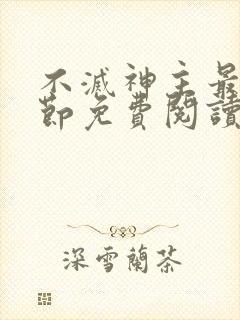 不滅神主最
節免費閱讀
深雪蘭茶